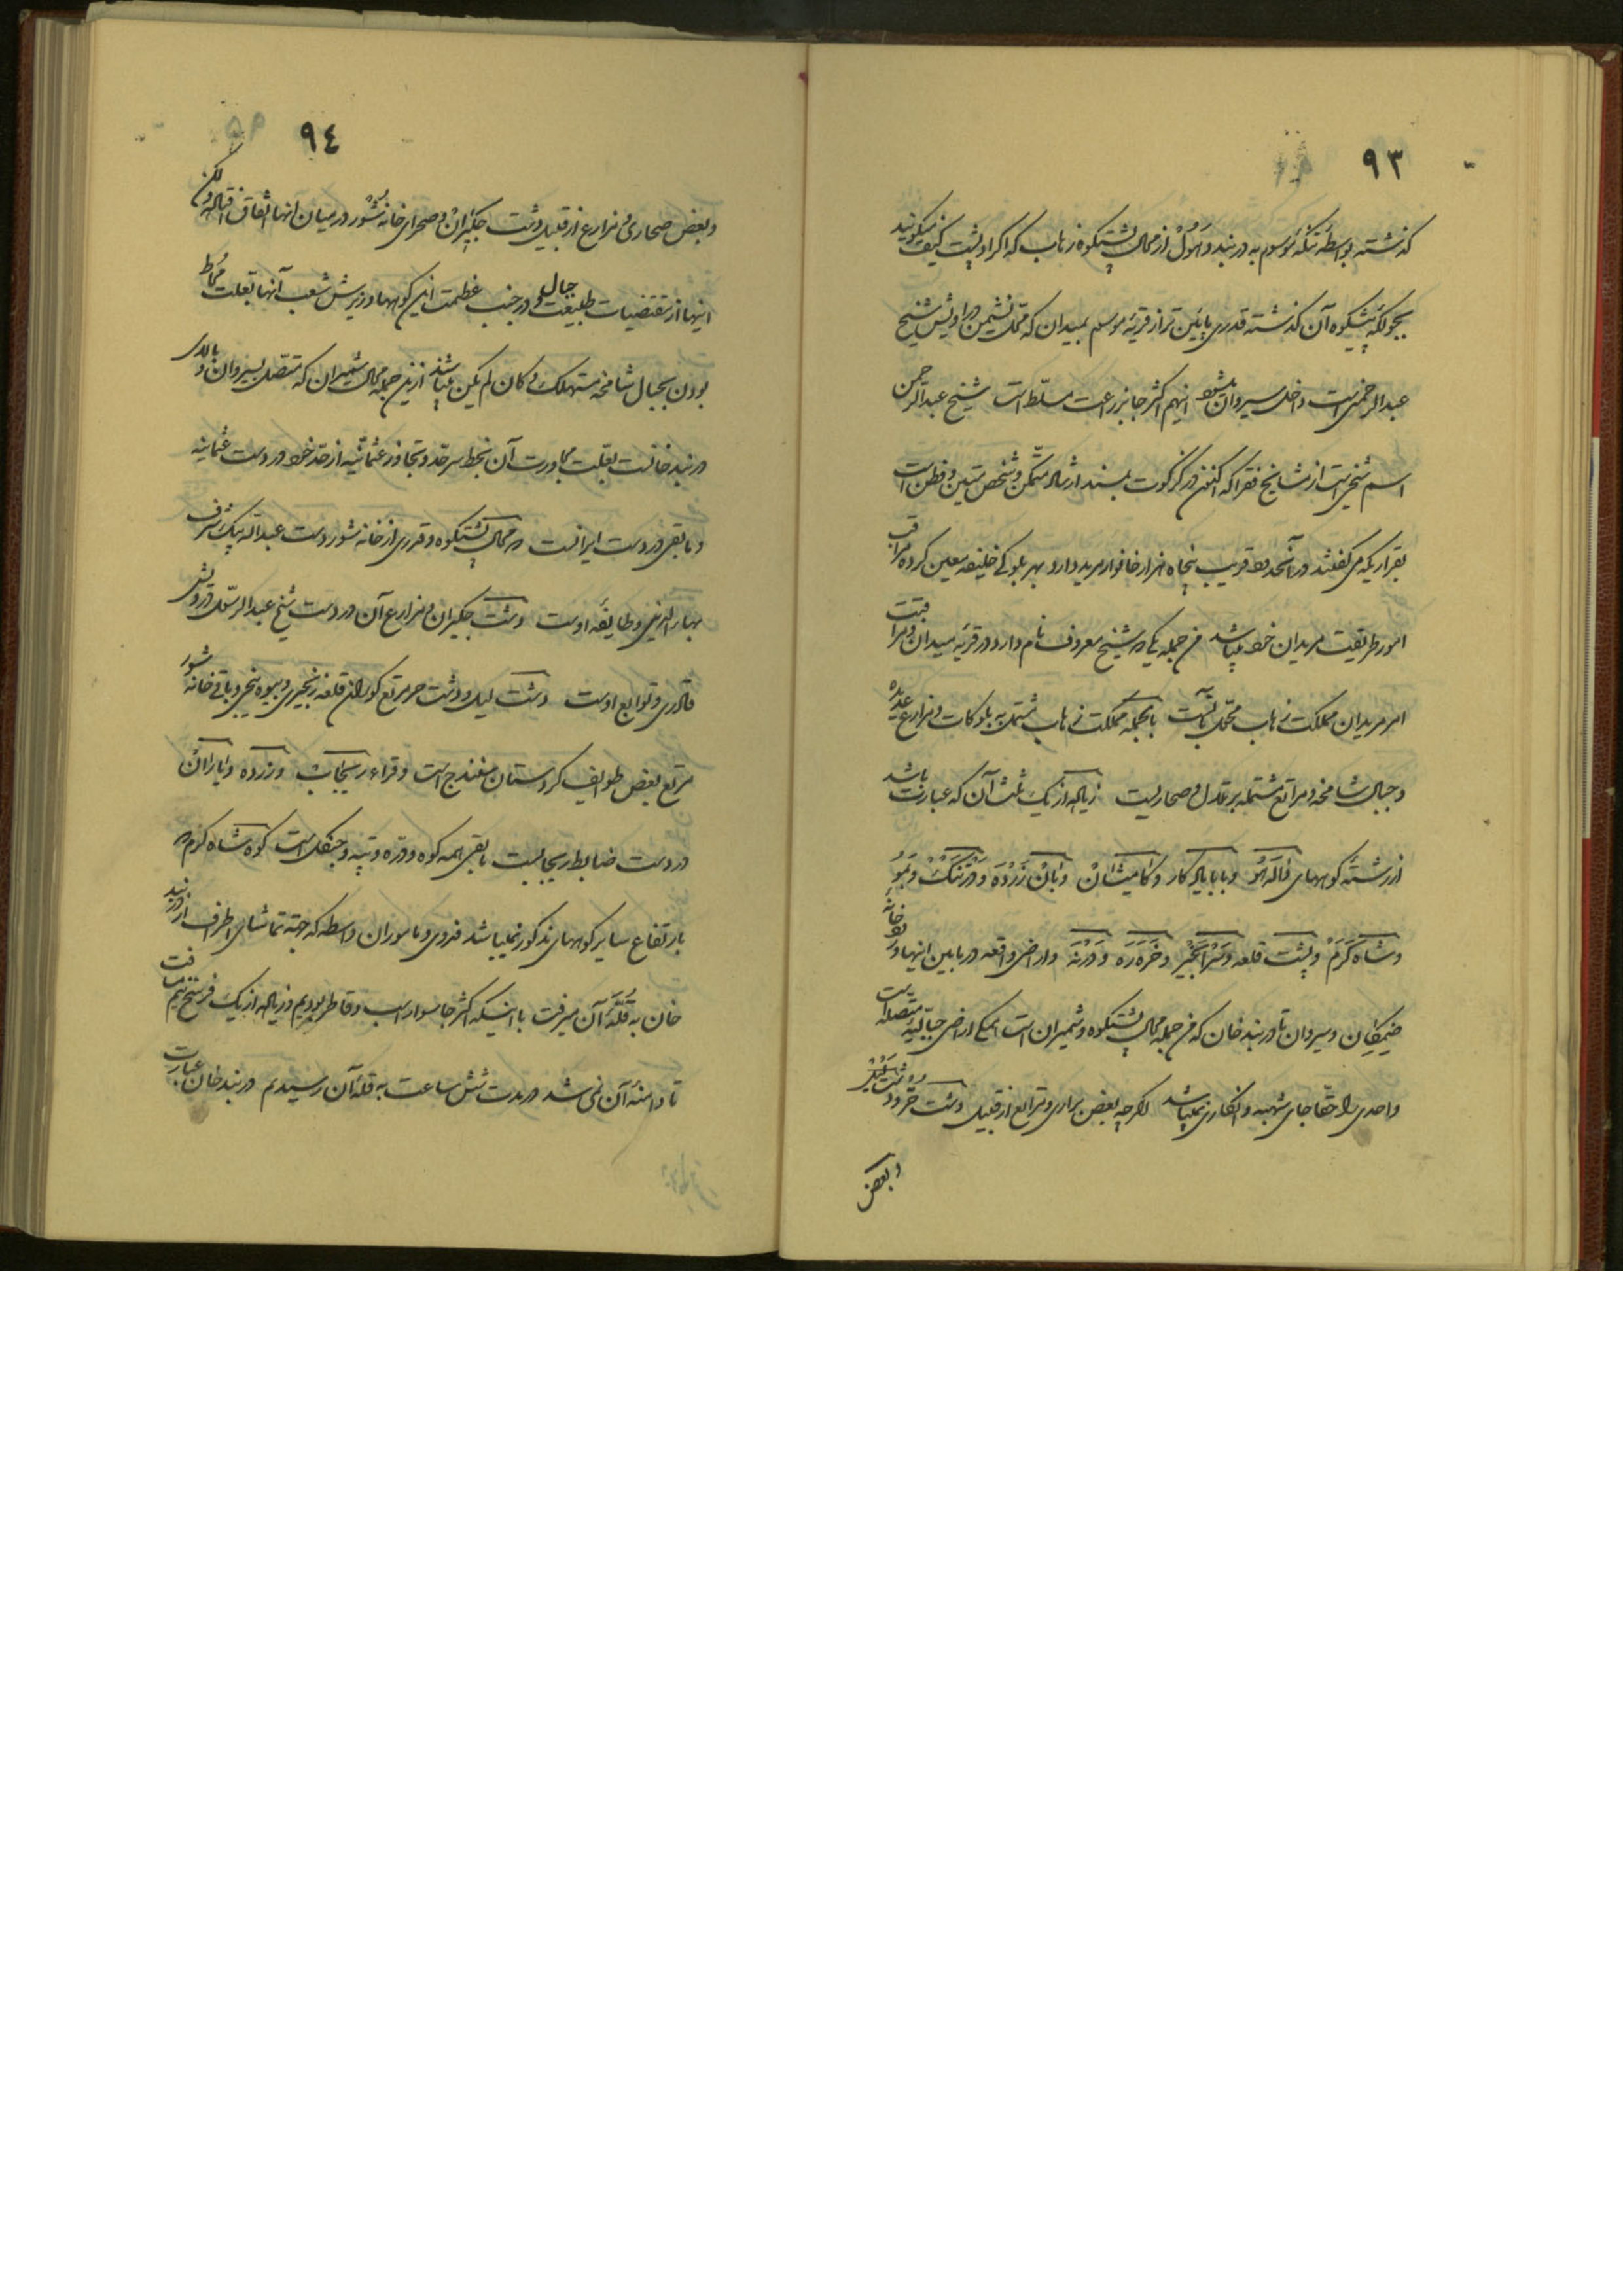 ٩٣
گذشته بواسطه تنگه موسوم به دربند و هول از محال پشتکوه زهاب که اکراد پشت کیف میگویند
بجولکه پیشکوه آن گذشته قدری پائین تر از قریه موسوم بمیدان که محل نشیمن دراویش شیخ
عبدالرحمن است داخل سیروان میشود اینهم اکثر جا بزراعت مسلط است شیخ عبدالرحمن
اسم شخصی است از مشایخ فقرا که اکنون در کرکوت بمسند ارشاد متمکن و شخص متین و فطن است
بقراریکه می گفتند در آنحدود قریب پنجاه هزار خانوار مرید دارد بهر بلوکی خلیفه معین کرده مراقب
امور طریقت مریدان خود میباشد من جمله یکی که شیخ معروف نام دارد در قریه میدان و مراقبت
امر مریدان مملکت زهاب محول باوست بالجمله مملکت زهاب مشتمل به بلوکات و مزارع عدیده
و جبال شامخه و مراتع مشتمله بر تلال و صحاریست زیاده از یک ثلث آن که عبارت باشد
از رشته کوههای داله هو و بابا یادکار و کامیشان و بان زرده و درتنک و بمو
و شاه کرم و پشت قلعه و سرانجیر و خره ره و ورنه و اراضی واقعه در مابین اینها و تو خانه
ضیمکان و سیروان تا دربند خان که من جمله محال پشتکوه و شمیران است همگی اراضی جبالیه متصله است
واحدی را حقا جای شبهه و انکاری نمیباشد اگرچه بعض براری و مراتع از قبیل دشت خرود و دشت
و بعض
٩٤
و بعض صحاری و مزارع از قبیل دشت جکیران و صحرای خانه شور در میان اینها اتفاق افتاده ولکن
اینها از مقتضیات طبیعت جبال و در جنب عظمت این کوهها و ریزش شعب آنها بعلت محاط
بودن بجبال شامخه مستهلک و کان لم یکن میباشند ازین جمله محال شمیران که متصل بسیروان و بالای
دربند خانست بعلت مجاورت آن بخط سرحد و تجاوز عثمانیه از حد خود در دست عثمانیه
و مابقی در دست ایرانست که محال پشتکوه و قدری از خانه شور دست عبدالله بیک شرف
و طایفه اوست دشت جکیران و مزارع آن در دست شیخ عبدالرسول درویش
قادری و توابع اوست دشت لیل و دشت حر مرتع کوران قلعه زنجیری و بیوه نیجی و باقی خانه شور
مرتع بعض طوایف کردستان سنندج است و قراء ریجاب و زرده و یاران
در دست ضابط ریجابست مابقی همه کوه و دره و تپه و جنگل است کوه شاه کرم که
بارتفاع سایر کوههای مذکور نمیباشد فدوی و ماموران واسطه که جهة تماشای اطراف از دربند
خان به قله آن میرفت با اینکه اکثر جا سوار اسب و قاطر بودیم و زیاده از یک فرسخ نیم مسافت
تا دامنه آن نمی شد در مدت شش ساعت به قله آن رسیدیم دربند خان عبارت